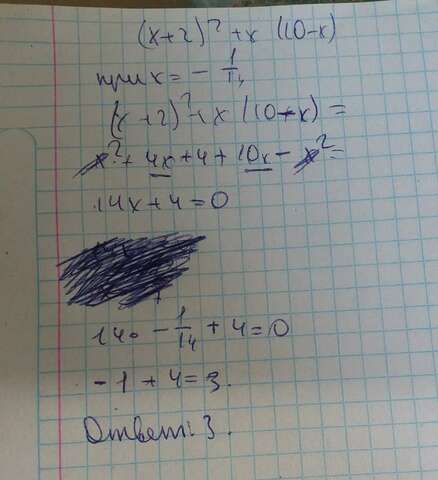 (x+2)² + x (10-x)
при x = - 1/14
(x+2)² + x (10-x) =
x² + 4x + 4 + 10x - x² =
14x + 4 = 0
14 · - 1/14 + 4 = 0
- 1 + 4 = 3.
Ответ: 3.